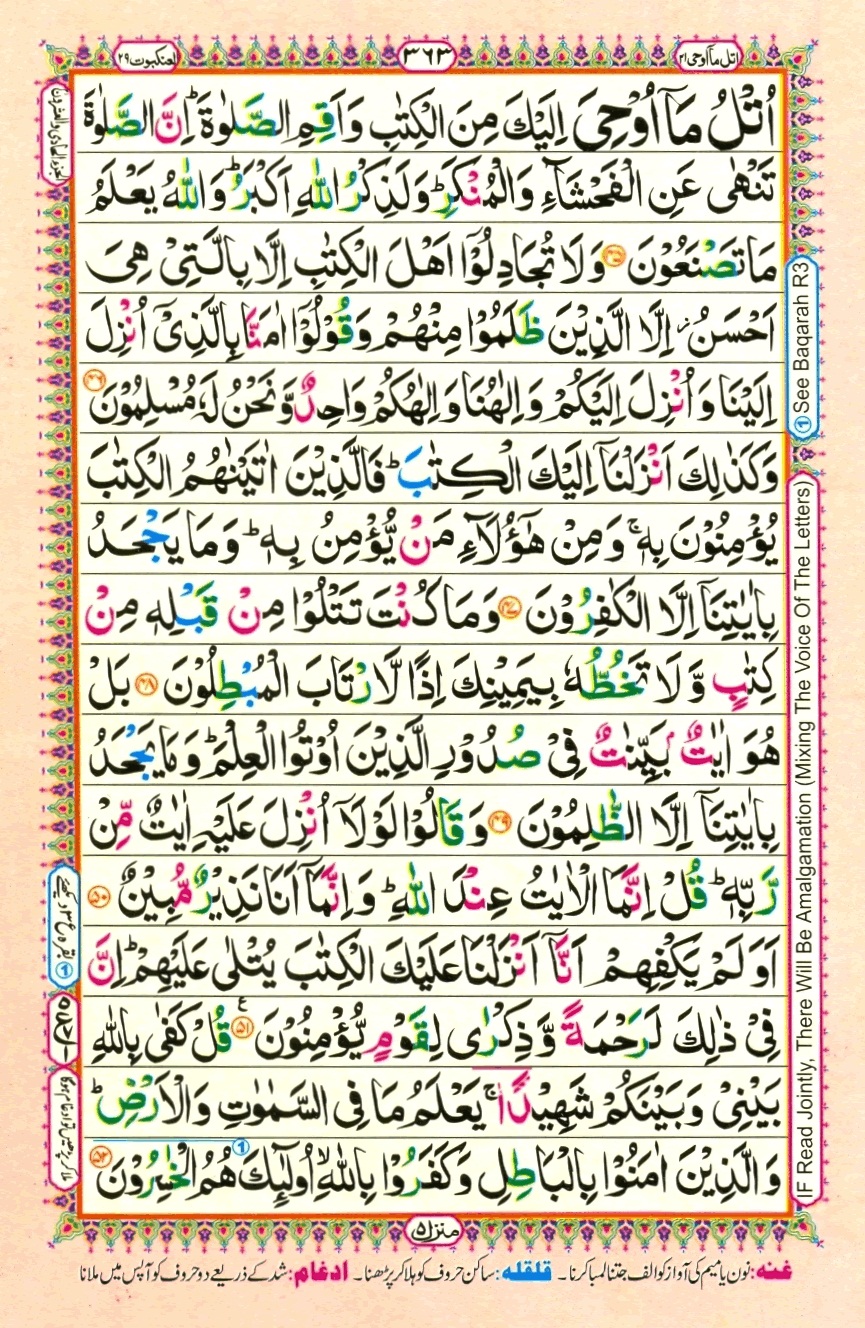 اتل مآاوحی ۲۱
۳۶۳
العنکبوت ۲۹
اُتْلُ مَاۤ اُوْحِیَ اِلَیْكَ مِنَ الْكِتٰبِ وَاَقِمِ الصَّلٰوةَ ؕ اِنَّ الصَّلٰوةَ
تَنْهٰی عَنِ الْفَحْشَآءِ وَالْمُنْكَرِ ؕ وَلَذِكْرُ اللّٰهِ اَكْبَرُ ؕ وَاللّٰهُ یَعْلَمُ
مَا تَصْنَعُوْنَ ۝۴۵ وَلَا تُجَادِلُوْۤا اَهْلَ الْكِتٰبِ اِلَّا بِالَّتِیْ هِیَ
اَحْسَنُ ۖ اِلَّا الَّذِیْنَ ظَلَمُوْا مِنْهُمْ وَقُوْلُوْۤا اٰمَنَّا بِالَّذِیْۤ اُنْزِلَ
اِلَیْنَا وَاُنْزِلَ اِلَیْكُمْ وَاِلٰهُنَا وَاِلٰهُكُمْ وَاحِدٌ وَّنَحْنُ لَهٗ مُسْلِمُوْنَ ۝۴۶
وَكَذٰلِكَ اَنْزَلْنَاۤ اِلَیْكَ الْكِتٰبَ ؕ فَالَّذِیْنَ اٰتَیْنٰهُمُ الْكِتٰبَ
یُؤْمِنُوْنَ بِهٖ ۚ وَمِنْ هٰۤؤُلَآءِ مَنْ یُّؤْمِنُ بِهٖ ؕ وَمَا یَجْحَدُ
بِاٰیٰتِنَاۤ اِلَّا الْكٰفِرُوْنَ ۝۴۷ وَمَا كُنْتَ تَتْلُوْا مِنْ قَبْلِهٖ مِنْ
كِتٰبٍ وَّلَا تَخُطُّهٗ بِیَمِیْنِكَ اِذًا لَّارْتَابَ الْمُبْطِلُوْنَ ۝۴۸ بَلْ
هُوَ اٰیٰتٌۢ بَیِّنٰتٌ فِیْ صُدُوْرِ الَّذِیْنَ اُوْتُوا الْعِلْمَ ؕ وَمَا یَجْحَدُ
بِاٰیٰتِنَاۤ اِلَّا الظّٰلِمُوْنَ ۝۴۹ وَقَالُوْا لَوْلَاۤ اُنْزِلَ عَلَیْهِ اٰیٰتٌ مِّنْ
رَّبِّهٖ ؕ قُلْ اِنَّمَا الْاٰیٰتُ عِنْدَ اللّٰهِ ؕ وَاِنَّمَاۤ اَنَا نَذِیْرٌ مُّبِیْنٌ ۝۵۰
اَوَلَمْ یَكْفِهِمْ اَنَّاۤ اَنْزَلْنَا عَلَیْكَ الْكِتٰبَ یُتْلٰی عَلَیْهِمْ ؕ اِنَّ
فِیْ ذٰلِكَ لَرَحْمَةً وَّذِكْرٰی لِقَوْمٍ یُّؤْمِنُوْنَ ۝۵۱ ع قُلْ كَفٰی بِاللّٰهِ
بَیْنِیْ وَبَیْنَكُمْ شَهِیْدًا ۚ یَعْلَمُ مَا فِی السَّمٰوٰتِ وَالْاَرْضِ ؕ
وَالَّذِیْنَ اٰمَنُوْا بِالْبَاطِلِ وَكَفَرُوْا بِاللّٰهِ ۙ ① اُولٰٓئِكَ هُمُ الْخٰسِرُوْنَ ۝۵۲
① See Baqarah R3
IF Read Jointly, There Will Be Amalgamation (Mixing The Voice Of The Letters)
الجزء الحادی والعشرون
① بقرہ ع ۳ دیکھئے
ملا کر پڑھیں تو ادغام ہوگا
منزل ۵
غنه: نون یا میم کی آواز کو الف جتنا لمبا کرنا۔ قلقله: ساکن حروف کو ہلا کر پڑھنا۔ ادغام: شد کے ذریعے دو حروف کو آپس میں ملانا